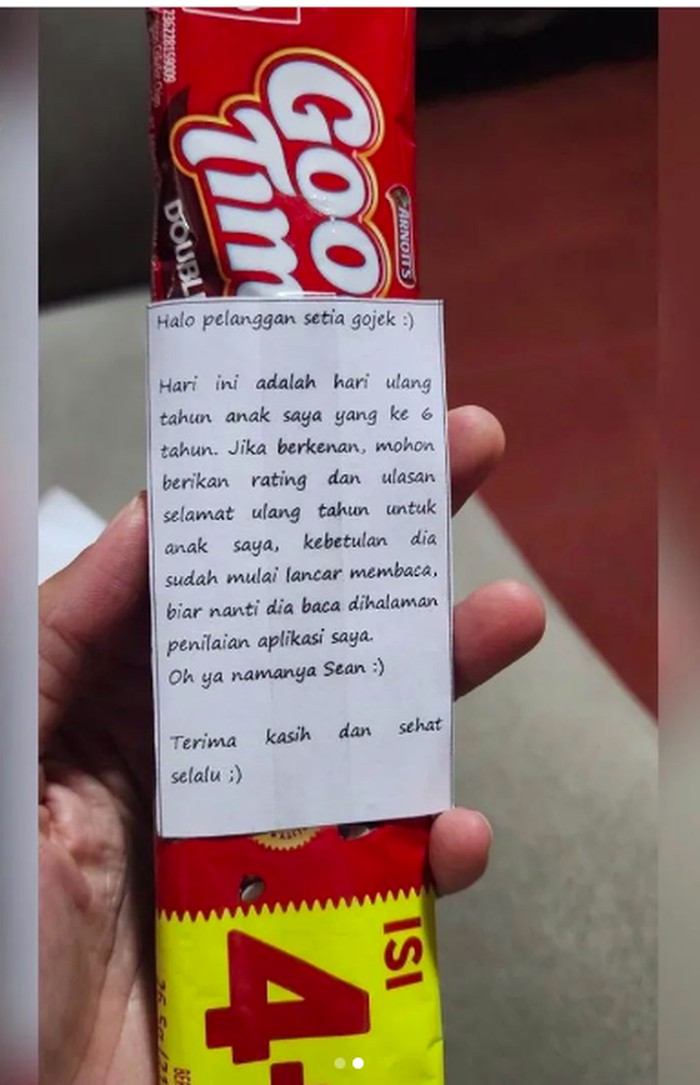 GOO
TIM
DOUBL
ARNOTT'S
Halo pelanggan setia gojek :)
Hari ini adalah hari ulang
tahun anak saya yang ke 6
tahun. Jika berkenan, mohon
berikan rating dan ulasan
selamat ulang tahun untuk
anak saya, kebetulan dia
sudah mulai lancar membaca,
biar nanti dia baca dihalaman
penilaian aplikasi saya.
Oh ya namanya Sean :)
Terima kasih dan sehat
selalu ;)
ISI
4